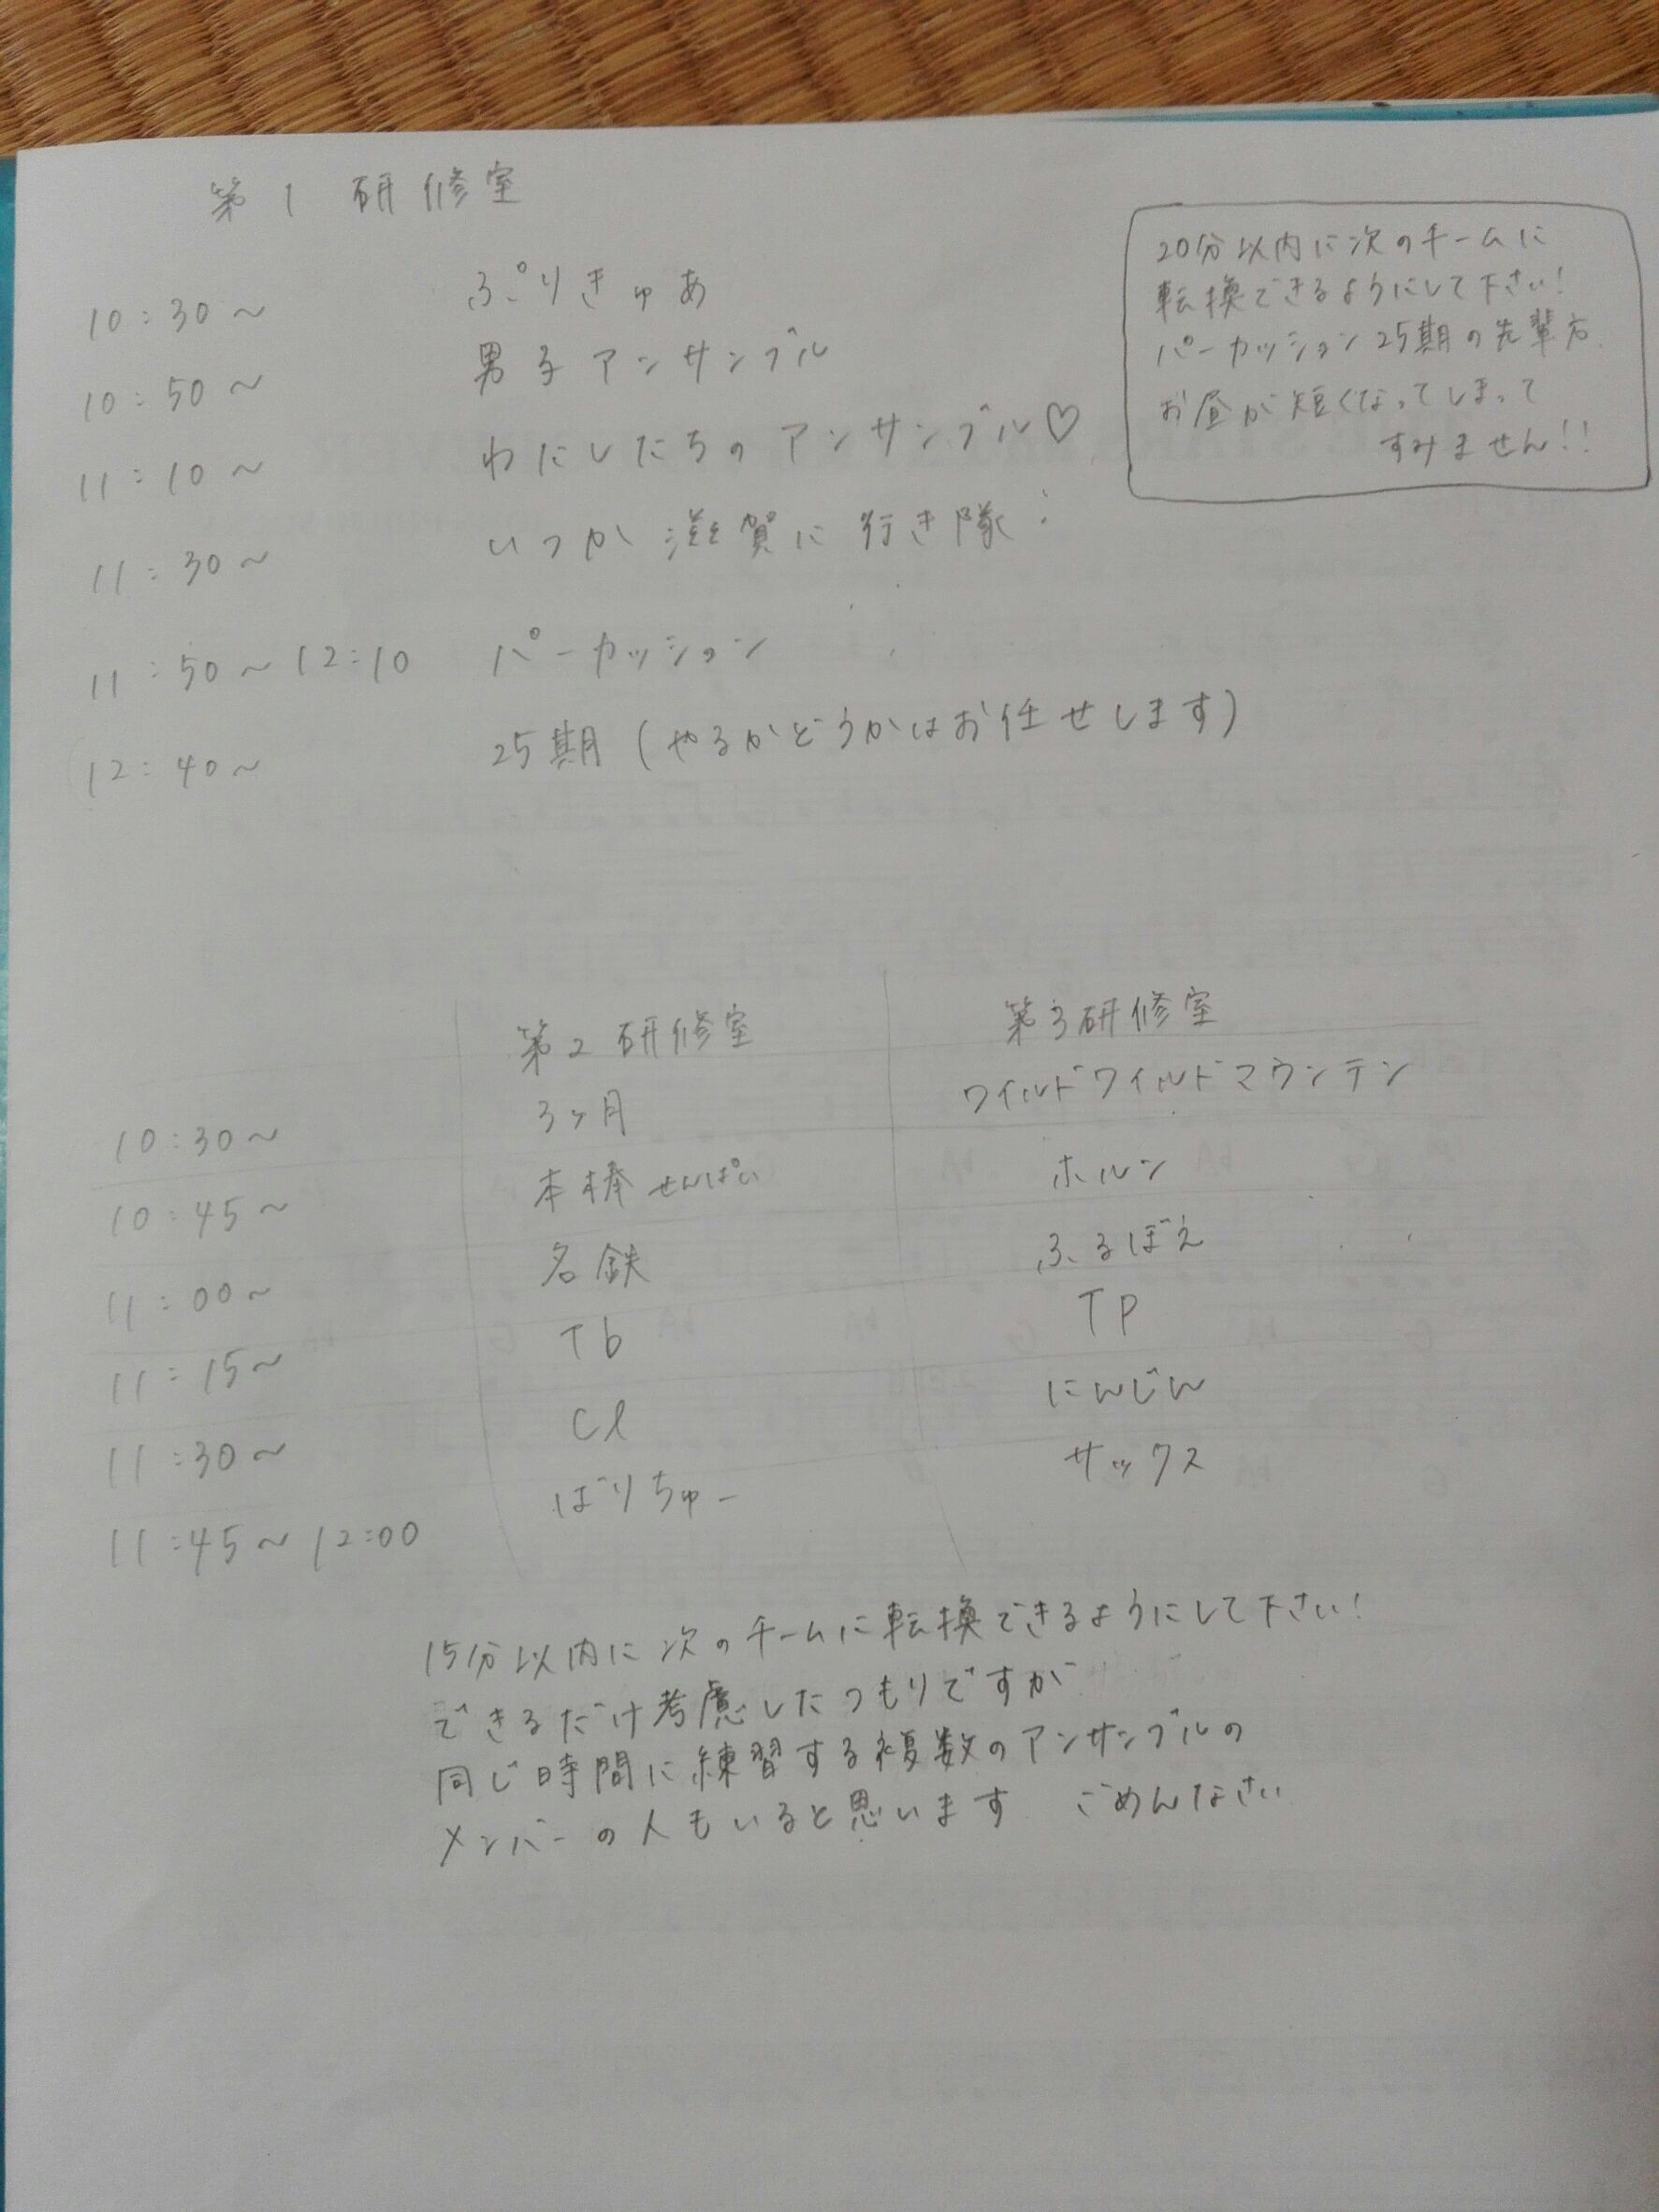 第1 研修室
20分以内に次のチームに
転換できるようにして下さい!
パーカッション25期の先輩方
お昼が短くなってしまって
すみません!!
10:30〜 ぷりきゅあ
10:50〜 男子アンサンブル
11:10〜 わたしたちのアンサンブル♡
11:30〜 いつか滋賀に行き隊
11:50〜12:10 パーカッション
12:40〜 25期(やるかどうかはお任せします)
第2研修室 第3研修室
10:30〜 3ヶ月 ワイルドワイルドマウンテン
10:45〜 本棒せんぱい ホルン
11:00〜 名鉄 ふるぼえ
11:15〜 Tb Tp
11:30〜 Cl にんじん
11:45〜12:00 ばりちゅー サックス
15分以内に次のチームに転換できるようにして下さい!
できるだけ考慮したつもりですが
同じ時間に練習する複数のアンサンブルの
メンバーの人もいると思います ごめんなさい